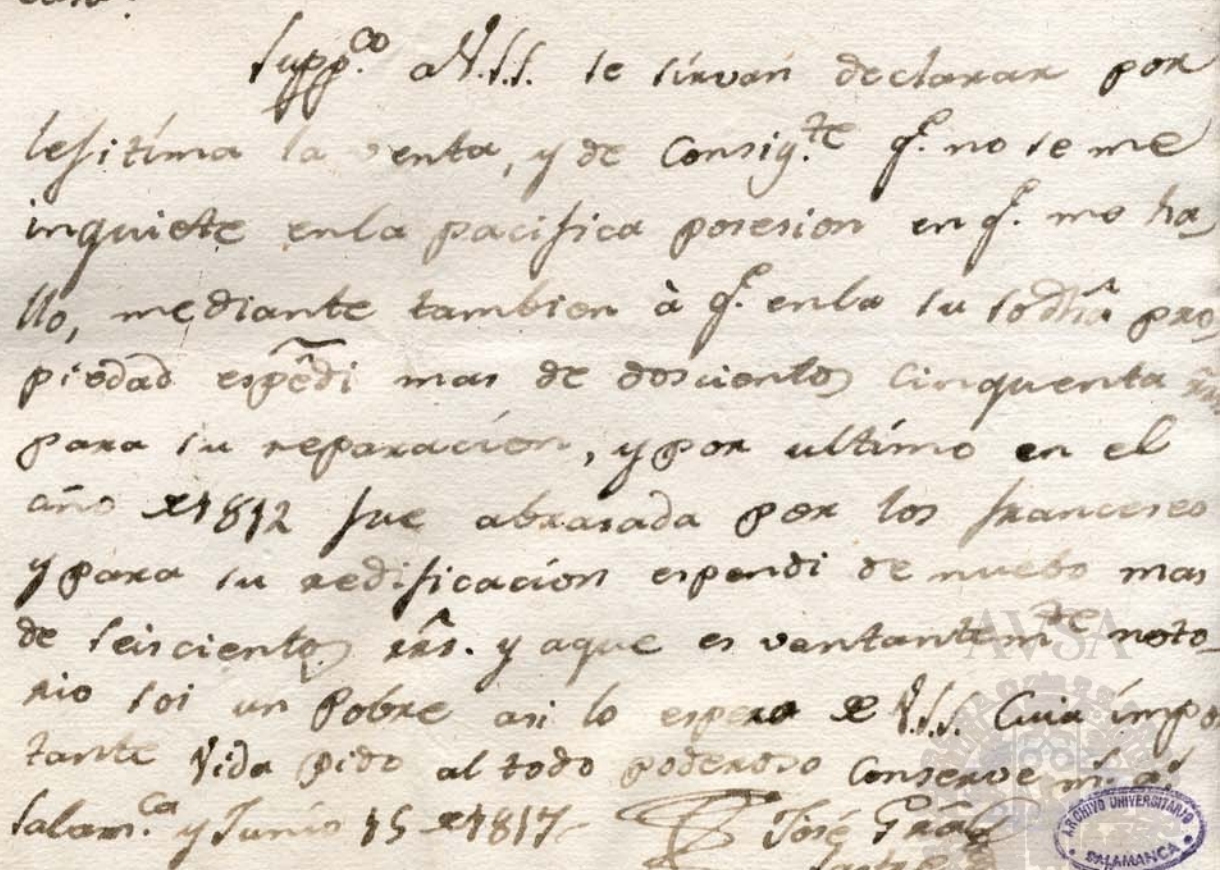 Supp.co a V.S.S. se sirvan declarar por
lejitima la venta, y de Consig.te q.e no se me
inquiete enla pacifica posesion en q.e me ha_
llo, mediante tambien à q.e enla su sodha pro_
piedad espêdi mas de doscientos cinquenta rrs
para su reparacion, y por ultimo en el
año de 1812 fue abrasada por los franceses
y para su redificacion espendi de nuebo mas
de seiscientos rrs. y aque es vantantem.te noto_
rio soi un Pobre asi lo espero de V.S.S. Cuia impo
tante Vida pido al todo poderoso Conserve m.s a.s
Salam.ca y Junio 15 de 1817
José
AVSA
ARCHIVO UNIVERSITARIO
SALAMANCA